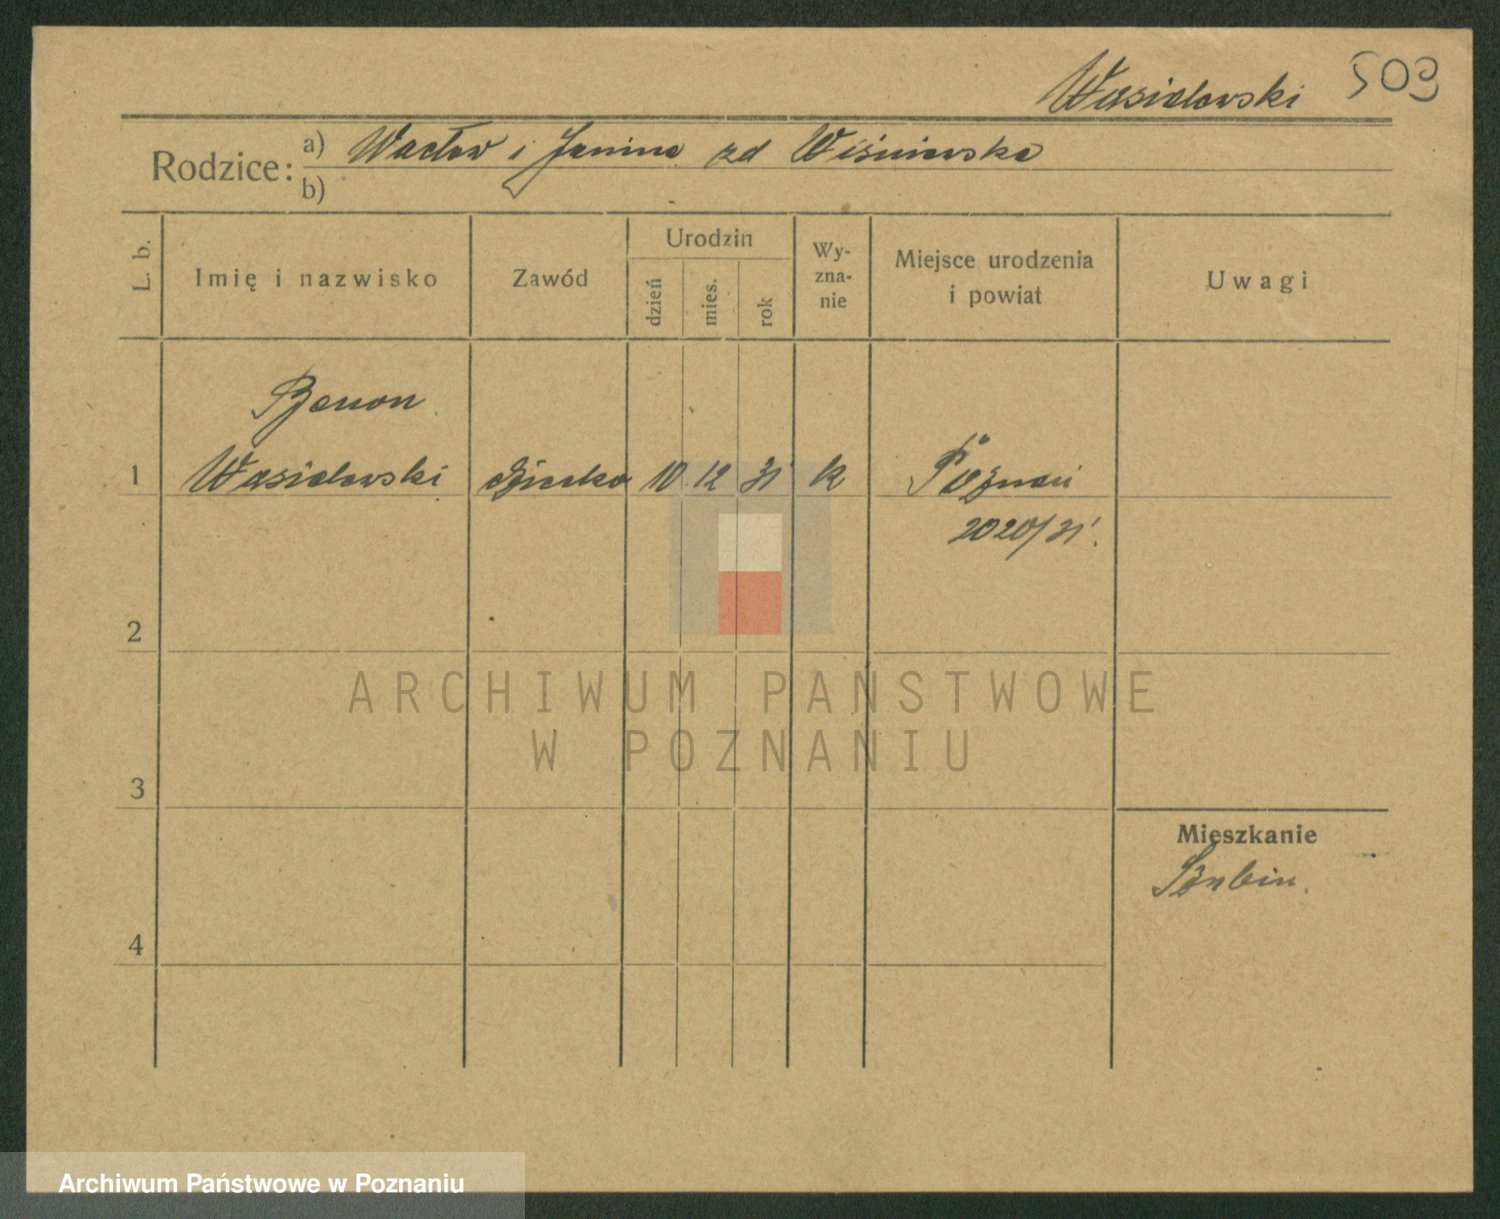 Wasielewski 509
Rodzice: a) Wacław i Janina zd Wiśniewska
b)
L. b. Imię i nazwisko Zawód Urodzin dzień mies. rok Wy-zna-nie Miejsce urodzenia i powiat Uwagi
Zenon
1 Wasielewski dziecko 10 12 31 k Poznań
2020/31.
2
ARCHIWUM PAŃSTWOWE
W POZNANIU
3
Mieszkanie
Szubin.
4
Archiwum Państwowe w Poznaniu